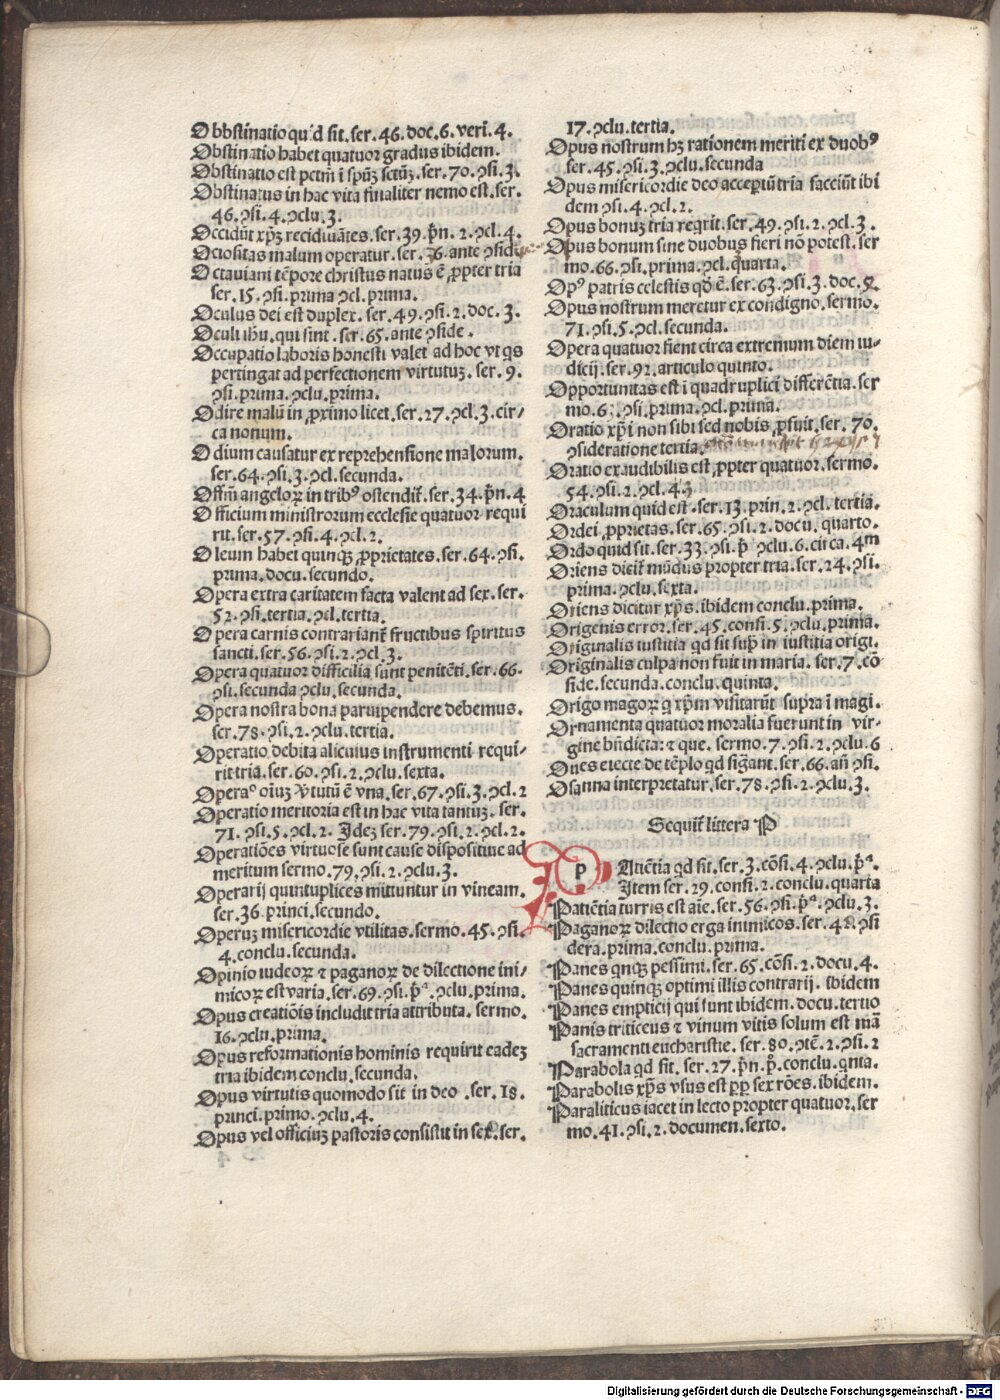 Obbstinatio quid sit. ser. 46. doc. 6. veri. 4.
Obstinatio habet quatuor gradus ibidem.
Obstinatio est pctm̄ ī spūꝫ sctūꝫ. ser. 70. ɔsi. 3.
Obstinatus in hac vita finaliter nemo est. ser.
46. ɔsi. 4. ɔclu. 3.
Occidūt xp̄ꝫ recidiuātes. ser. 39. p̄n. 2. ɔcl. 4.
Ociositas malum operatur. ser. 36. ante ɔside
Octauiani tēpore christus natus ē ꝓpter tria
ser. 15. ɔsi. prima ɔcl. prima.
Oculus dei est duplex. ser. 49. ɔsi. 2. doc. 3.
Oculi ihū, qui sint. ser. 65. ante ɔside.
Occupatio laboris honesti valet ad hoc vt qs
pertingat ad perfectionem virtutuꝫ. ser. 9.
ɔsi. prima. ɔclu. prima.
Odire malū in ꝓximo licet. ser. 27. ɔcl. 3. cir/
ca nonum.
Odium causatur ex reprehensione malorum.
ser. 64. ɔsi. 3. ɔcl. secunda.
Offm̄ angeloꝝ in tribꝰ ostendit̄. ser. 34. p̄n. 4
Officium ministrorum ecclesie quatuor requi
rit. ser. 57. ɔsi. 4. ɔcl. 2.
Oleum habet quinqꝫ ꝓprietates. ser. 64. ɔsi.
prima. docu. secundo.
Opera extra caritatem facta valent ad sex. ser.
52. ɔsi. tertia. ɔcl. tertia.
Opera carnis contrariant̄ fructibus spiritus
sancti. ser. 56. ɔsi. 2. ɔcl. 3.
Opera quatuor difficilia sunt penitēti. ser. 66.
ɔsi. secunda ɔclu. secunda.
Opera nostra bona paruipendere debemus.
ser. 78. ɔsi. 2. ɔclu. tertia.
Operatio debita alicuius instrumenti requi/
rit tria. ser. 60. ɔsi. 2. ɔclu. sexta.
Operaº oīuꝫ v̄tutū ē vna. ser. 67. ɔsi. 3. ɔcl. 2
Operatio meritoria est in hac vita tantuꝫ. ser.
71. ɔsi. 5. ɔcl. 2. Ideꝫ ser. 79. ɔsi. 2. ɔcl. 2.
Operatiōes virtuose sunt cause dispositiue ad
meritum sermo. 79. ɔsi. 2. ɔclu. 3.
Operarij quintuplices mittuntur in vineam.
ser. 36. princi. secundo.
Operuꝫ misericordie vtilitas. sermo. 45. ɔsi.
4. conclu. secunda.
Opinio iudeoꝝ ⁊ paganoꝝ de dilectione ini/
micoꝝ est varia. ser. 69. ɔsi. p̄ª. ɔclu. prima.
Opus creatiōis includit tria attributa. sermo.
16. ɔclu. prima.
Opus reformationis hominis requirit eadeꝫ
tria ibidem conclu. secunda.
Opus virtutis quomodo sit in deo. ser. 18.
princi. primo. ɔclu. 4.
Opus vel officiuꝫ pastoris consistit in sex. ser.
17. ɔclu. tertia.
Opus nostrum hꝫ rationem meriti ex duobꝰ
ser. 45. ɔsi. 3. ɔclu. secunda
Opus misericordie deo acceptū tria faciūt ibi
dem ɔsi. 4. ɔcl. 2.
Opus bonuꝫ tria reqrit. ser. 49. ɔsi. 2. ɔcl. 3.
Opus bonum sine duobus fieri nō potest. ser
mo. 66. ɔsi. prima. ɔcl. quarta.
Opꝰ patris celestis qd ē. ser. 63. ɔsi. 3. doc. 5.
Opus nostrum meretur ex condigno. sermo.
71. ɔsi. 5. ɔcl. secunda.
Opera quatuor fient circa extremum diem iu/
dicij. ser. 92. articulo quinto.
Opportunitas est ī quadruplici differētia. ser
mo. 6 ɔsi. prima. ɔcl. prima.
Oratio xp̄i non sibi sed nobis ꝓfuit. ser. 70.
ɔsideratione tertia.
Oratio exaudibilis est ꝓpter quatuor. sermo.
54. ɔsi. 2. ɔcl. 4.
Oraculum quid est. ser. 13. prin. 2. ɔcl. tertia.
Ordei ꝓprietas. ser. 65. ɔsi. 2. docu. quarto.
Ordo quid sit. ser. 33. ɔsi. p̄ ɔclu. 6. circa. 4m
Oriens dicit̄ mūdus propter tria. ser. 24. ɔsi.
prima. ɔclu. sexta.
Oriens dicitur xp̄s. ibidem conclu. prima.
Origenis error. ser. 45. consi. 5. ɔclu. prima.
Originalis iusticia qd sit sup̄ in iustitia origi.
Originalis culpa non fuit in maria. ser. 7. cō
side. secunda. conclu. quinta.
Origo magoꝝ q xp̄m visitarūt supra ī magi.
Ornamenta quatuor moralia fuerunt in vir-
gine bn̄dicta: ⁊ que. sermo. 7. ɔsi. 2. ɔclu. 6
Oues eiecte de tēplo qd sigāt. ser. 66. an̄ ɔsi.
Osanna interpretatur. ser. 78. ɔsi. 2. ɔclu. 3.
Sequit̄ littera P
PAtiētia qd sit. ser. 3. cōsi. 4. ɔclu. p̄ª.
Item ser. 29. consi. 2. conclu. quarta
Patiētia turris est aīe. ser. 56. ɔsi. p̄ª. ɔclu. 3.
Paganoꝝ dilectio erga inimicos. ser. 4 ɔsi
dera. prima. conclu. prima.
Panes qnqꝫ pessimi. ser. 65. cōsi. 2. docu. 4.
Panes quinqꝫ optimi illis contrarij. ibidem
Panes empticij qui sunt ibidem. docu. tertio
Panis triticeus ⁊ vinum vitis solum est mā
sacramenti eucharistie. ser. 80. ɔtē. 2. ɔsi. 2
Parabola qd sit. ser. 27. p̄n. p̊. conclu. qnta.
Parabolis xp̄s vsus est ꝓp sex rōes. ibidem.
Paraliticus iacet in lecto propter quatuor. ser
mo. 41. ɔsi. 2. documen. sexto.
Digitalisierung gefördert durch die Deutsche Forschungsgemeinschaft - DFG